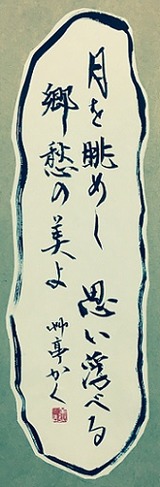 月を眺めし 思い浮べる
郷愁の美よ
妙亭かく